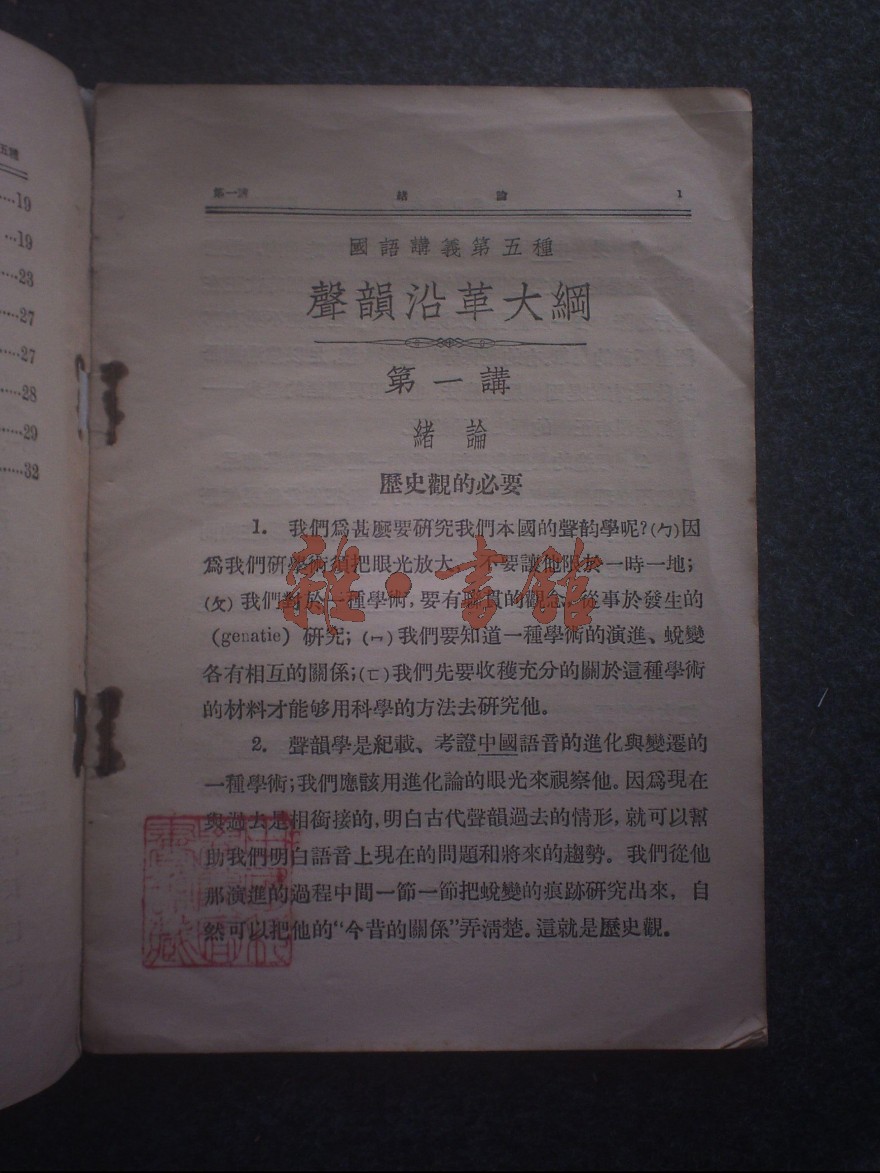 五種
19
19
23
27
27
28
29
32
第一講 緒論 1
國語講義第五種
聲韻沿革大綱
第一講
緒論
歷史觀的必要
1. 我們爲甚麼要研究我們本國的聲韵學呢?(ㄅ)因
爲我們研學術須把眼光放大,不要讓他限於一時一地;
(ㄆ)我們對於一種學術,要有聯貫的觀念,從事於發生的
(genatie)研究;(ㄇ)我們要知道一種學術的演進、蛻變
各有相互的關係;(ㄈ)我們先要收穫充分的關於這種學術
的材料才能够用科學的方法去研究他。
2. 聲韻學是紀載、考證中國語音的進化與變遷的
一種學術;我們應該用進化論的眼光來視察他。因爲現在
與過去是相銜接的,明白古代聲韻過去的情形,就可以幫
助我們明白語音上現在的問題和將來的趨勢。我們從他
那演進的過程中間一節一節把蛻變的痕跡研究出來,自
然可以把他的“今昔的關係”弄淸楚。這就是歷史觀。
雜·書館